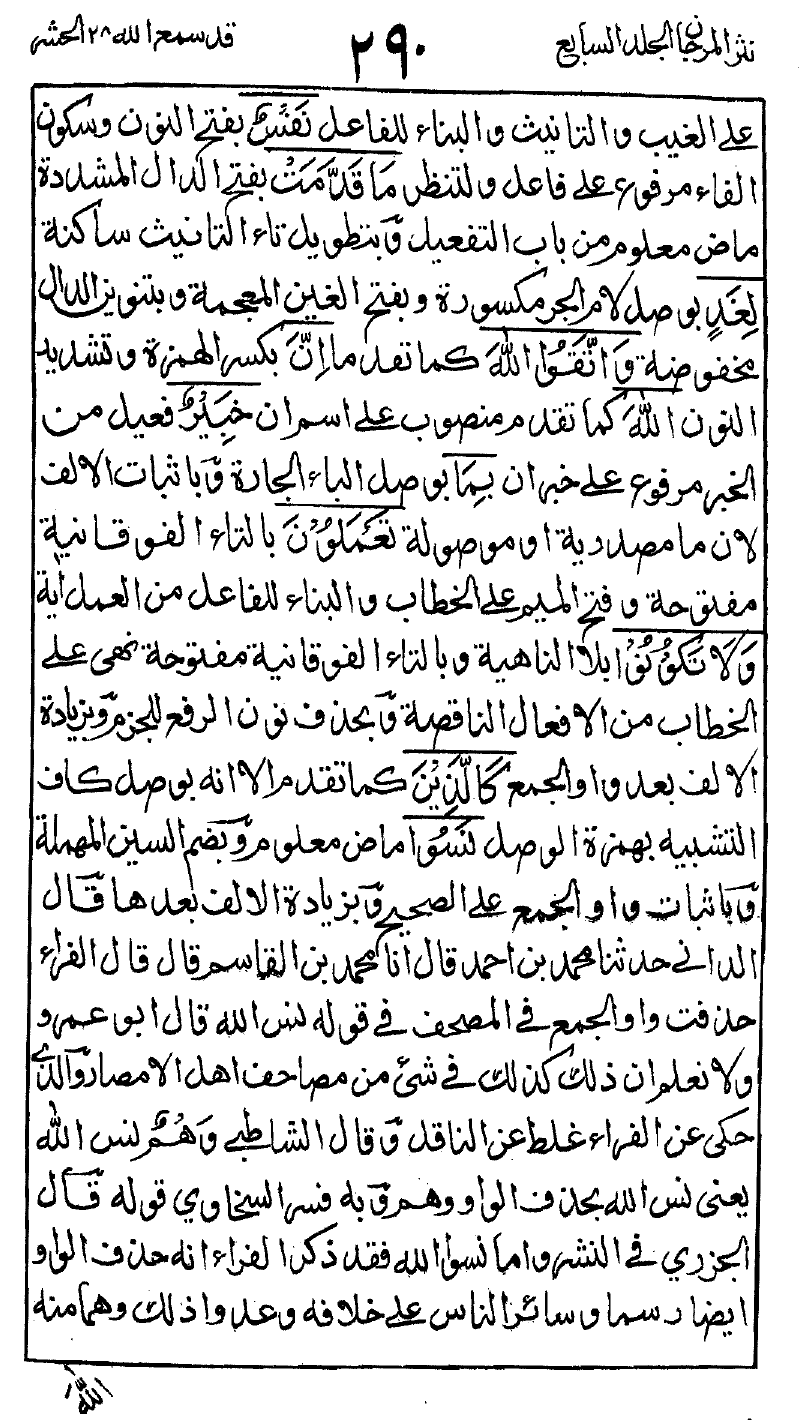 نثر المرجان الجلد السابع
٢٩٠
قد سمع الله ٢٨ الحشر
على الغيب والتانيث والبناء للفاعل نَفْسٌ بفتح النون وسكون
الفاء مرفوع على فاعل ولتنظر مَا قَدَّمَتْ بفتح الدال المشددة
ماض معلوم من باب التفعيل وبتطويل تاء التانيث ساكنة
لِغَدٍ بوصل لام الجر مكسورة وبفتح الغين المعجمة وبتنوين الدال
مخفوضة وَاتَّقُوا اللهَ كما تقدم ما اِنَّ بكسر الهمزة وتشديد
النون اللهَ كما تقدم منصوب على اسم ان خَبِيْرٌ فعيل من
الخبر مرفوع على خبر ان بِمَا بوصل الباء الجارة وباثبات الالف
لان ما مصدرية او موصولة تَعْمَلُوْنَ بالتاء الفوقانية
مفتوحة وفتح الميم على الخطاب والبناء للفاعل من العمل اٰية
وَلَا تَكُوْنُوْا بلا الناهية وبالتاء الفوقانية مفتوحة نهى على
الخطاب من الافعال الناقصة وبحذف نون الرفع للجزم وبزيادة
الالف بعد واو الجمع كَالَّذِيْنَ كما تقدم الا انه بوصل كاف
التشبيه بهمزة الوصل نَسُوْا ماض معلوم وبضم السين المهملة
وباثبات واو الجمع على الصحيح وبزيادة الالف بعدها قال
الداني حدثنا محمد بن احمد قال انا محمد بن القاسم قال قال الفراء
حذفت واو الجمع في المصحف في قوله نس الله قال ابو عمرو
ولا نعلم ان ذلك كذلك في شئ من مصاحف اهل الامصار والذي
حكى عن الفراء غلط عن الناقل وقال الشاطبي وَهُمْ نس الله
يعنى نس الله بحذف الواو وهم وبه فسر السخاوي قوله قال
الجزري في النشر واما نسوا الله فقد ذكر الفراء انه حذف الواو
ايضا رسما وسائر الناس على خلافه وعدوا ذلك وهما منه
اللهَ